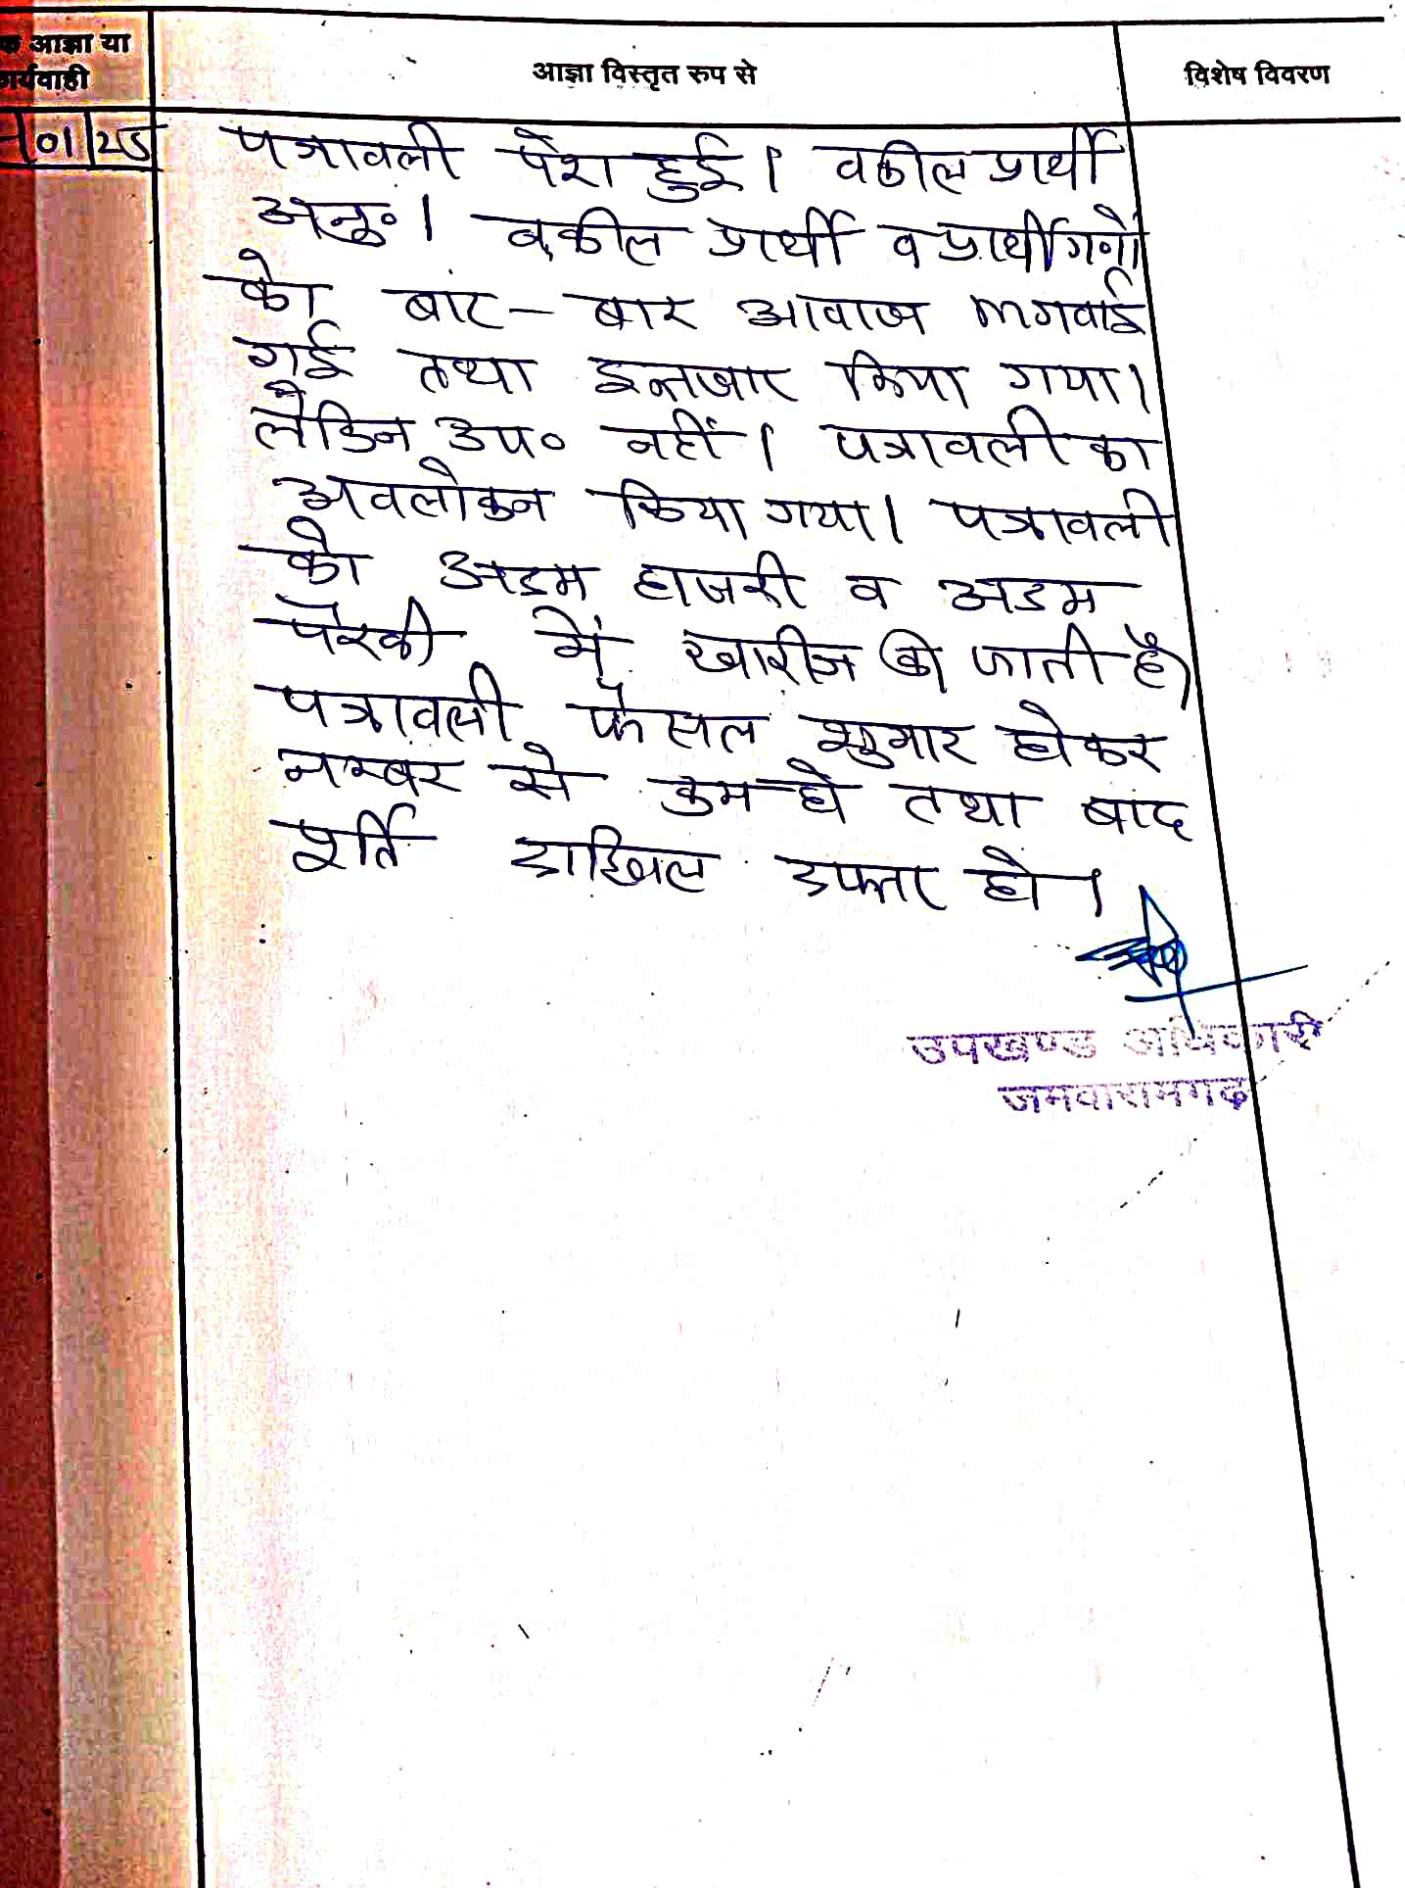 आज्ञा या
आज्ञा विस्तृत रुप से
विशेष विवरण
कार्यवाही
01/25
पत्रावली पेश हुई। वकील प्रार्थी
अनु०। वकील प्रार्थी व प्रार्थीगणो
को बार-बार आवाज लगवाई
गई तथा इन्तजार किया गया।
लेकिन उप० नहीं। पत्रावली का
अवलोकन किया गया। पत्रावली
को अदम हाजरी व अदम
पैरवी में खारीज की जाती है।
पत्रावली फैसल शुमार होकर
नम्बर से कम हो तथा बाद
पूर्ति दाखिल दफ्तर हो।
उपखण्ड अधिकारी
जमवारामगढ